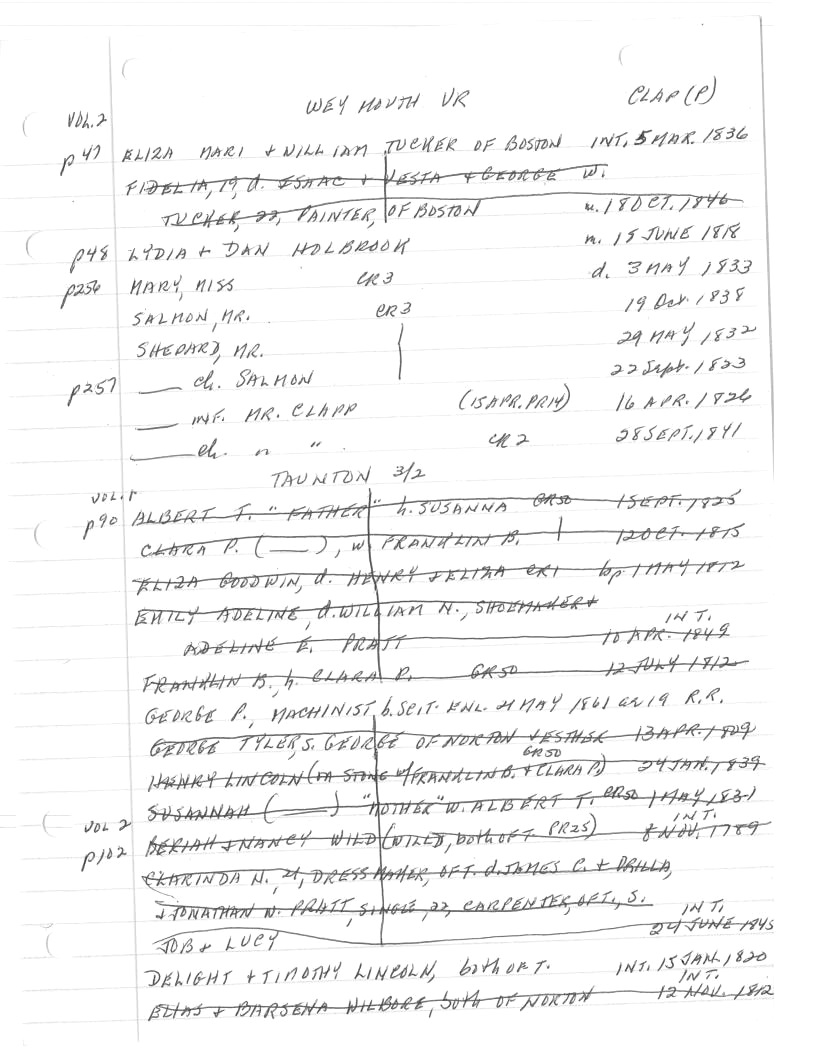 WEYMOUTH VR CLAP(P)
VOL. 2
p47 ELIZA MARI + WILLIAM TUCKER OF BOSTON INT. 5 MAR. 1836
FIDELIA, 19, d. ISAAC + VESTA + GEORGE W.
TUCKER, 22, PAINTER, OF BOSTON m. 18 OCT. 1846
p48 LYDIA + DAN HOLBROOK m. 15 JUNE 1818
p256 MARY, MISS CR3 d. 3 MAY 1833
SALMON, MR. CR3 19 Oct. 1838
SHEPARD, MR. 29 MAY 1832
p257 ___ ch. SALMON 22 Sept. 1823
___ INF. MR. CLAPP (15 APR. PR14) 16 APR. 1826
___ ch. " " CR2 28 SEPT. 1841
TAUNTON 3/2
VOL. 1
p90 ALBERT T. "FATHER" h. SUSANNA GR50 1 SEPT. 1825
CLARA P. (___), w. FRANKLIN B. 12 OCT. 1815
ELIZA GOODWIN, d. HENRY + ELIZA CR1 bp. 1 MAY 1812
EMILY ADELINE, d. WILLIAM N., SHOEMAKER +
ADELINE E. PRATT INT. 10 APR. 1849
FRANKLIN B., h. CLARA P. GR50 12 JULY 1812
GEORGE P., MACHINIST b. SCIT. ENL. 21 MAY 1861 at 19 R.R.
GEORGE TYLER, S. GEORGE OF NORTON + ESTHER 13 APR. 1809
HENRY LINCOLN (on STONE w/ FRANKLIN B. + CLARA P.) GR50 24 JAN. 1839
SUSANNAH (___) "MOTHER" W. ALBERT T. GR50 1 MAY 1831
VOL 2
p102 BERIAH + NANCY WILD (WILLD, both OF T. PR25) INT. 8 NOV. 1789
CLARINDA N., 21, DRESS MAKER, OF T. d. JAMES C. + PRILLA,
+ JONATHAN N. PRATT, SINGLE, 22, CARPENTER, OF T., S.
JOB + LUCY INT. 24 JUNE 1845
DELIGHT + TIMOTHY LINCOLN, both OF T. INT. 15 JAN. 1820
ELIAS + BARSENA WILBORE, both OF NORTON INT. 12 NOV. 1812